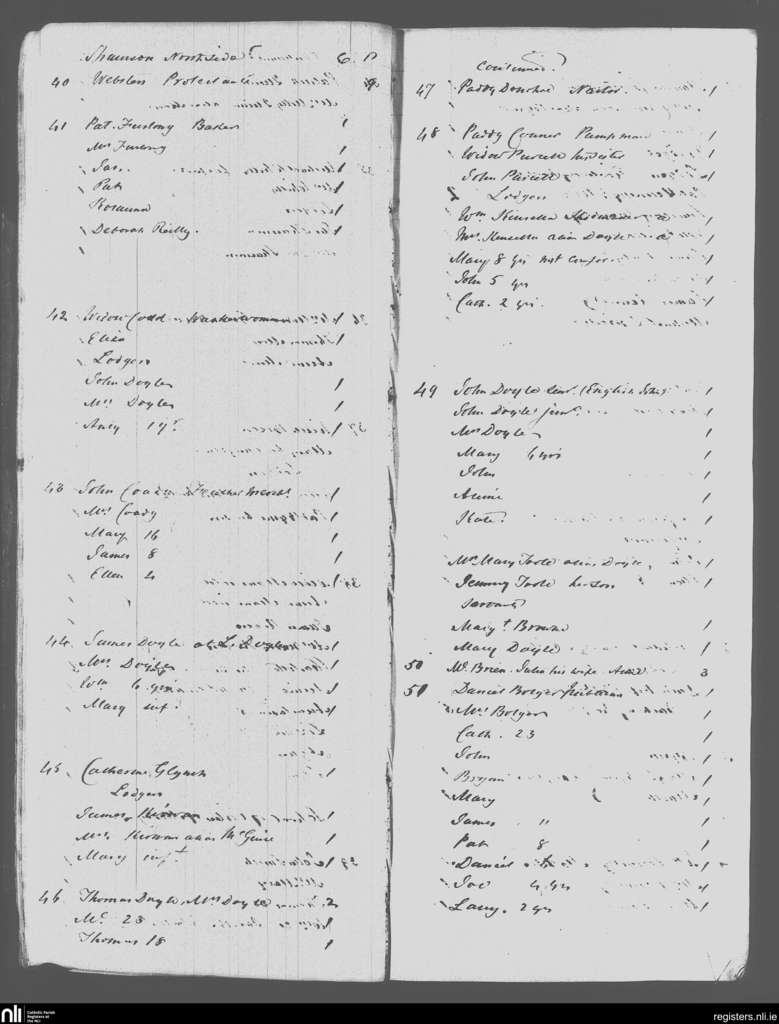 Shannon North side C. P
40 Websters Protestants
41 Pat. Furlong Baker 1
Mrs Furlong 1
Jas. 1
Pat 1
Rosanna 1
Deborah Reilly. 1
42 Widow Codd Washerwoman 1
Eliza 1
Lodgers
John Doyle 1
Mrs Doyle 1
Anty 17
43 John Coady 1
Mrs Coady 1
Mary 16 1
James 8 1
Ellen 4
44 James Doyle 1
Mrs Doyle 1
Wm 6 yrs
Mary inf.
45 Catherine Glynn
Lodgers
James Kirwan 1
Mrs Kirwan alias McGuire 1
Mary inft
46 Thomas Doyle, Mrs Doyle 2
Mc 23
Thomas 18 1
continued.
47 Paddy Donohoe Nailor. 1
48 Paddy Conner Pumpman 1
Widow Purcell his sister 1
John Purcell 1
2 Lodgers
Wm Kinsella 1
Mrs. Kinsella alias Doyle 1
Mary 8 yrs not confes 1
John 5 yrs 1
Cath. 2 yrs. 1
49 John Doyle Senr. (English John) 1
John Doyle junr. 1
Mrs Doyle 1
Mary 6 yrs 1
John 1
Annie 1
Kate 1
Mrs Mary Toole alias Doyle, 1
Jemmy Toole her son 1
Servants
Margt Browne 1
Mary Doyle 1
50 Mc Brien. Julia his wife 3
51 Daniel Bolger 1
Mrs Bolger 1
Cath. 23 1
John 1
Bryan 1
Mary 1
James 11 1
Pat 8 1
Daniel 1
Joe 4 yrs 1
Larry. 2 yrs 1
nli
Catholic Parish
Registers at
the NLI
registers.nli.ie